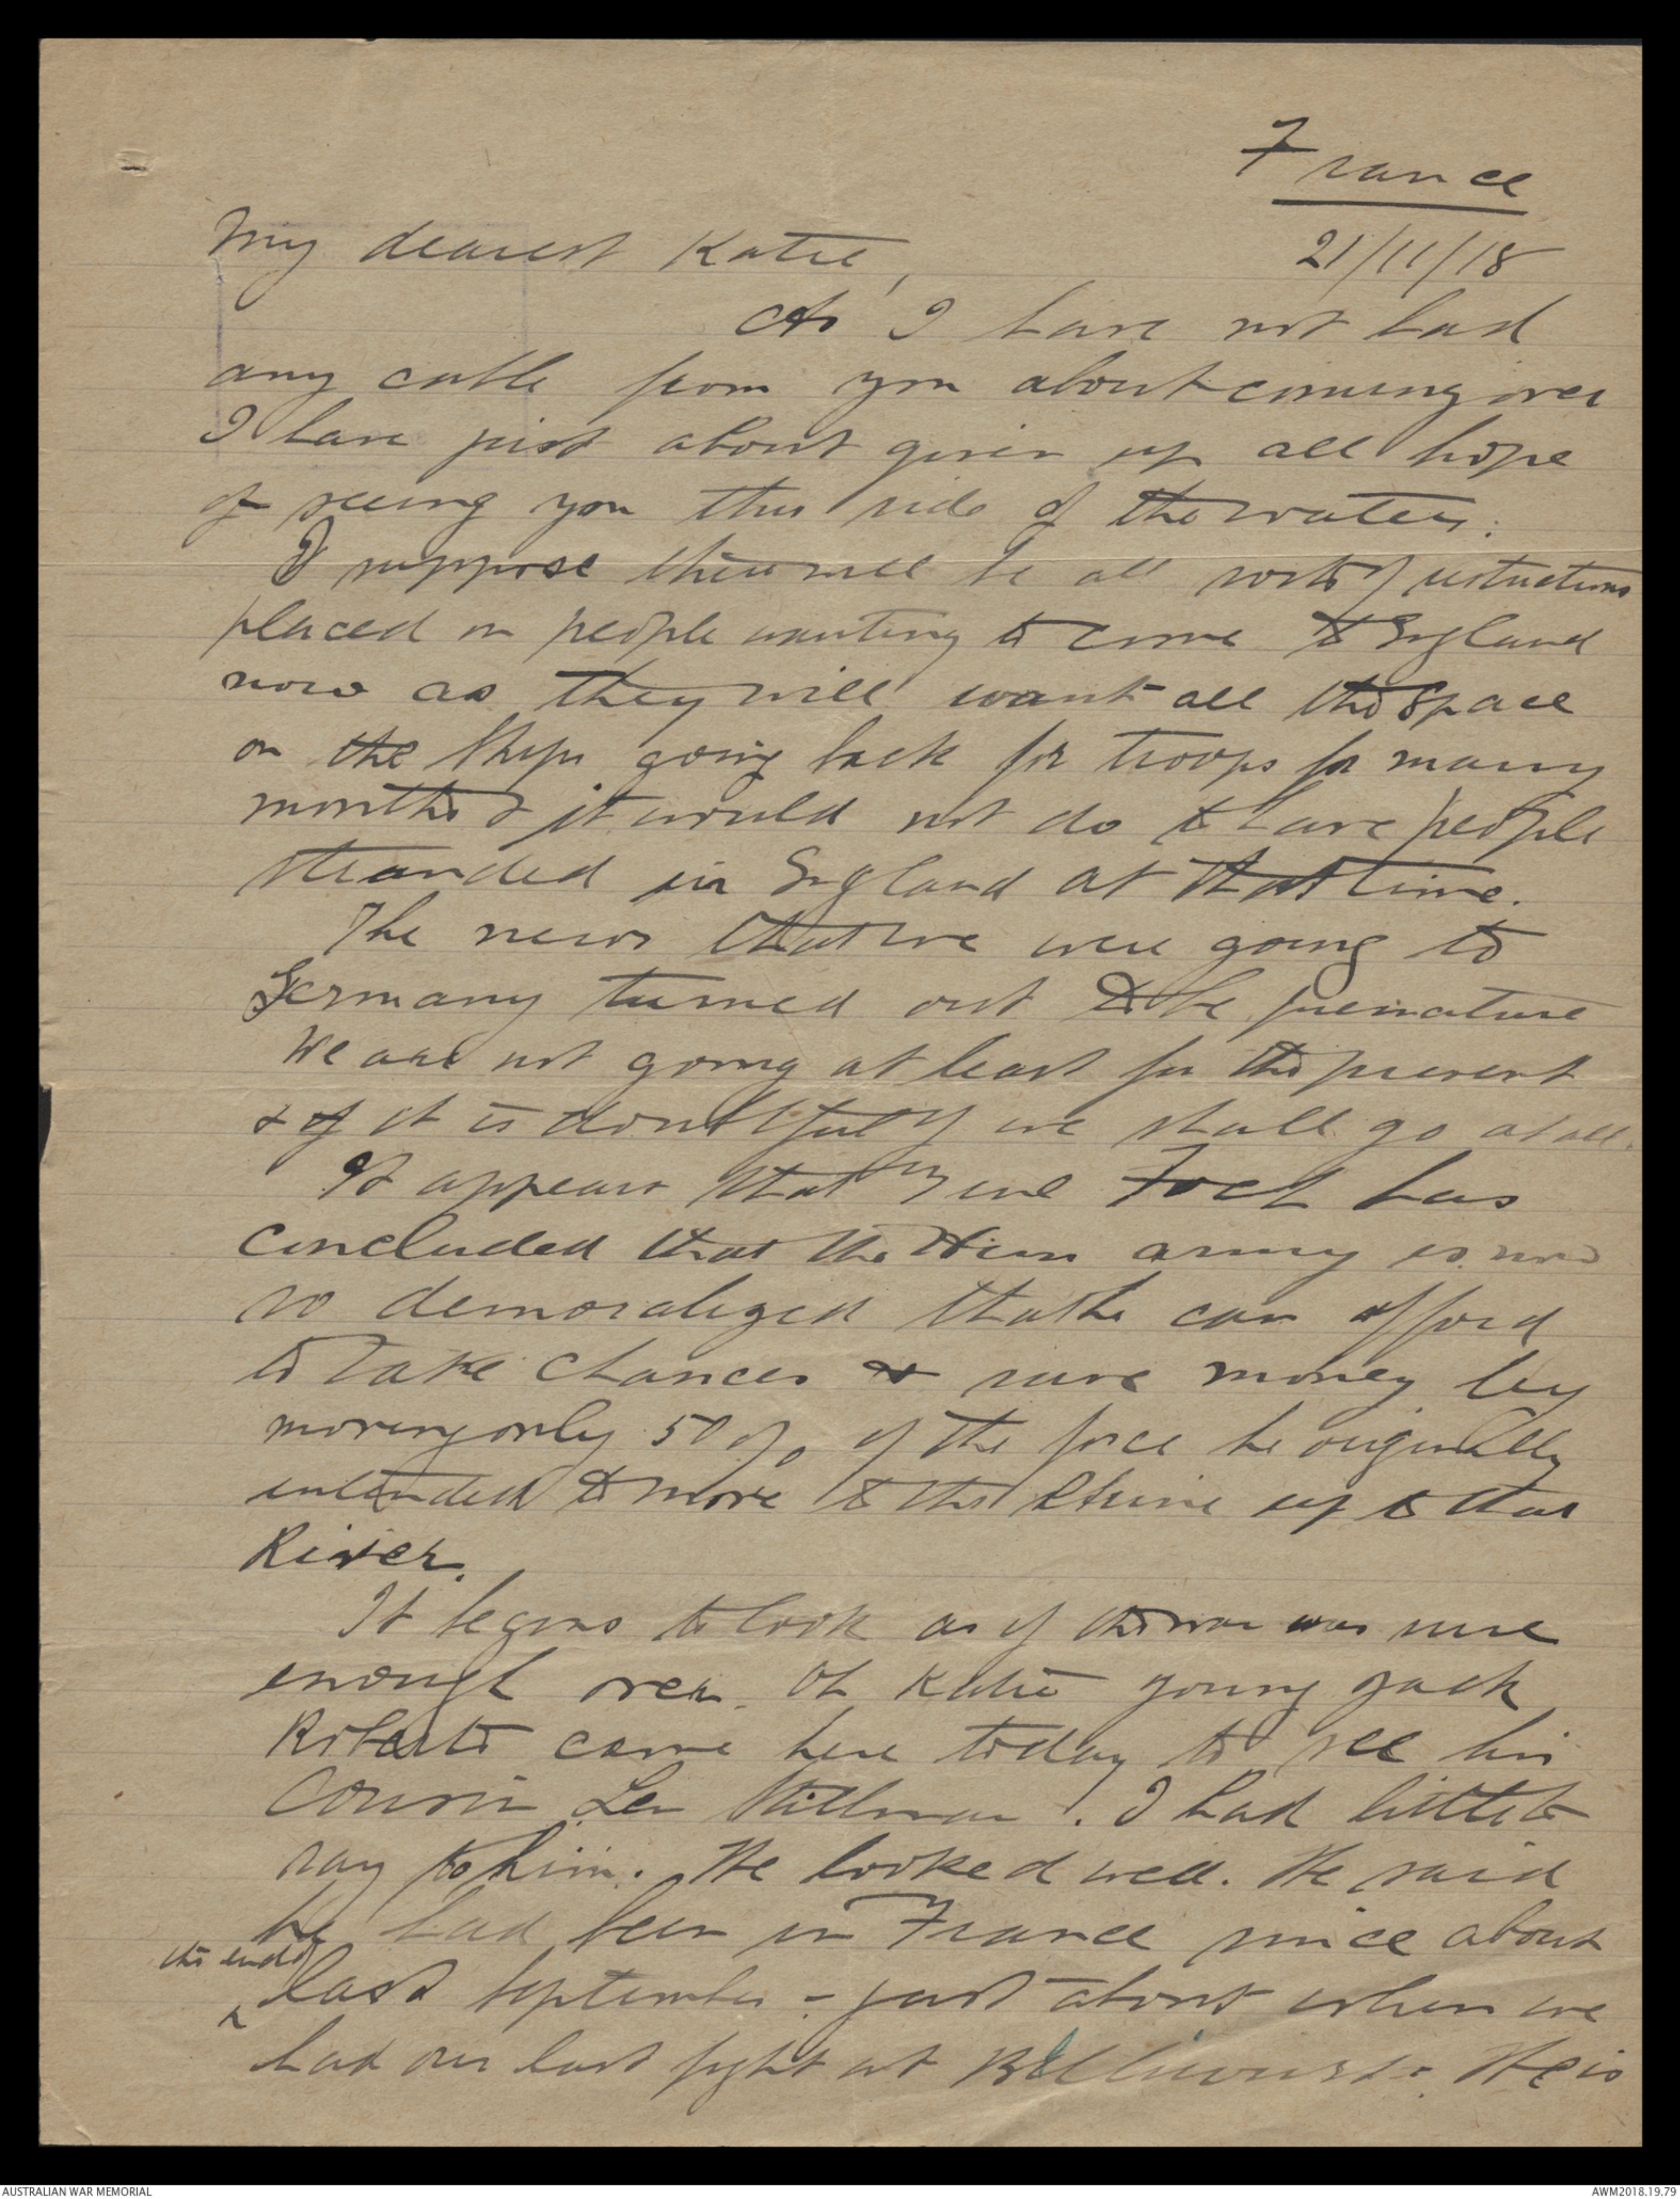 France
21/11/18
My dearest Katie,
As I have not had
any cable from you about coming over
I have just about given up all hope
of seeing you this side of the water.
I suppose there will be all sorts of restrictions
placed on people wanting to come to England
now as they will want all the space
on the ships going back for troops for many
months & it would not do to have people
stranded in England at that time.
The news that we were going to
Germany turned out to be premature
We are not going at least for the present
& if it is doubtful if we shall go at all.
It appears that Foch has
concluded that the Hun army is now
so demoralized that he can afford
to take chances & save money by
moving only 50% of the force he originally
intended to move to the Rhine up to that
River.
It begins to look as if the war was sure
enough over. Oh Katie young Jack
Roberts came here today to see his
Cousin Len Stillman. I had little to
say to him. He looked well. He said
he had been in France since about
the end of
last September - just about when we
had our last fight at Bellicourt. He is
AUSTRALIAN WAR MEMORIAL
AWM2018.19.79